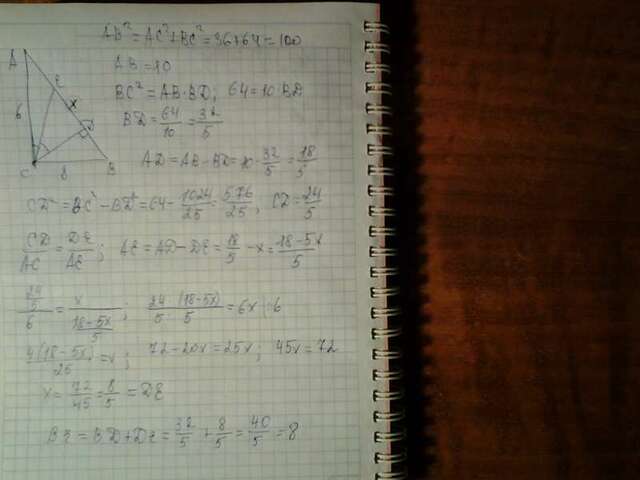 AB² = AC² + BC² = 36 + 64 = 100
AB = 10
BC² = AB · BD; 64 = 10 · BD
BD = 64/10 = 32/5
AD = AB - BD = 10 - 32/5 = 18/5
CD² = BC² - BD² = 64 - 1024/25 = 576/25; CD = 24/5
CD/AC = DE/AE; AE = AD - DE = 18/5 - x = (18-5x)/5
(24/5)/6 = x/((18-5x)/5); 24/5 · (18-5x)/5 = 6x |:6
4(18-5x)/25 = x; 72-20x = 25x; 45x = 72
x = 72/45 = 8/5 = DE
BE = BD + DE = 32/5 + 8/5 = 40/5 = 8
A
E
x
6
D
C
8
B